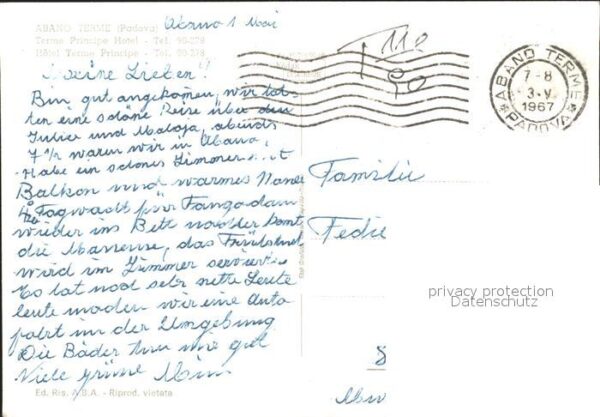 ABANO TERME (Padova)
Terme Principe Hotel - Tel. 90-278
Hôtel Terme Principe - Tel. 90-278
Abano 1 Mai
Meine Lieben!
Bin gut angekomen, wir hat-
ten eine schöne Reise über den
Julier und Maloja, abends
7 ½ waren wir in Abano,
Habe ein schönes Zimmer mit
Balkon und warmes
Tagwacht für Fango dan
wieder ins Bett nachher komt
die Masseuse, das Frühstück
wird im Zimmer serviert
Es hat noch sehr nette Leute
heute machen wir eine Auto
fahrt in der Umgebung
Die Bäder tun mir gut
Viele grüsse
Ed. Ris. A.B.A. - Riprod. vietata
T 110
90
ABANO TERME
7-8
3-V
1967
PADOVA
Familie
Fedie
privacy protection
Datenschutz
8